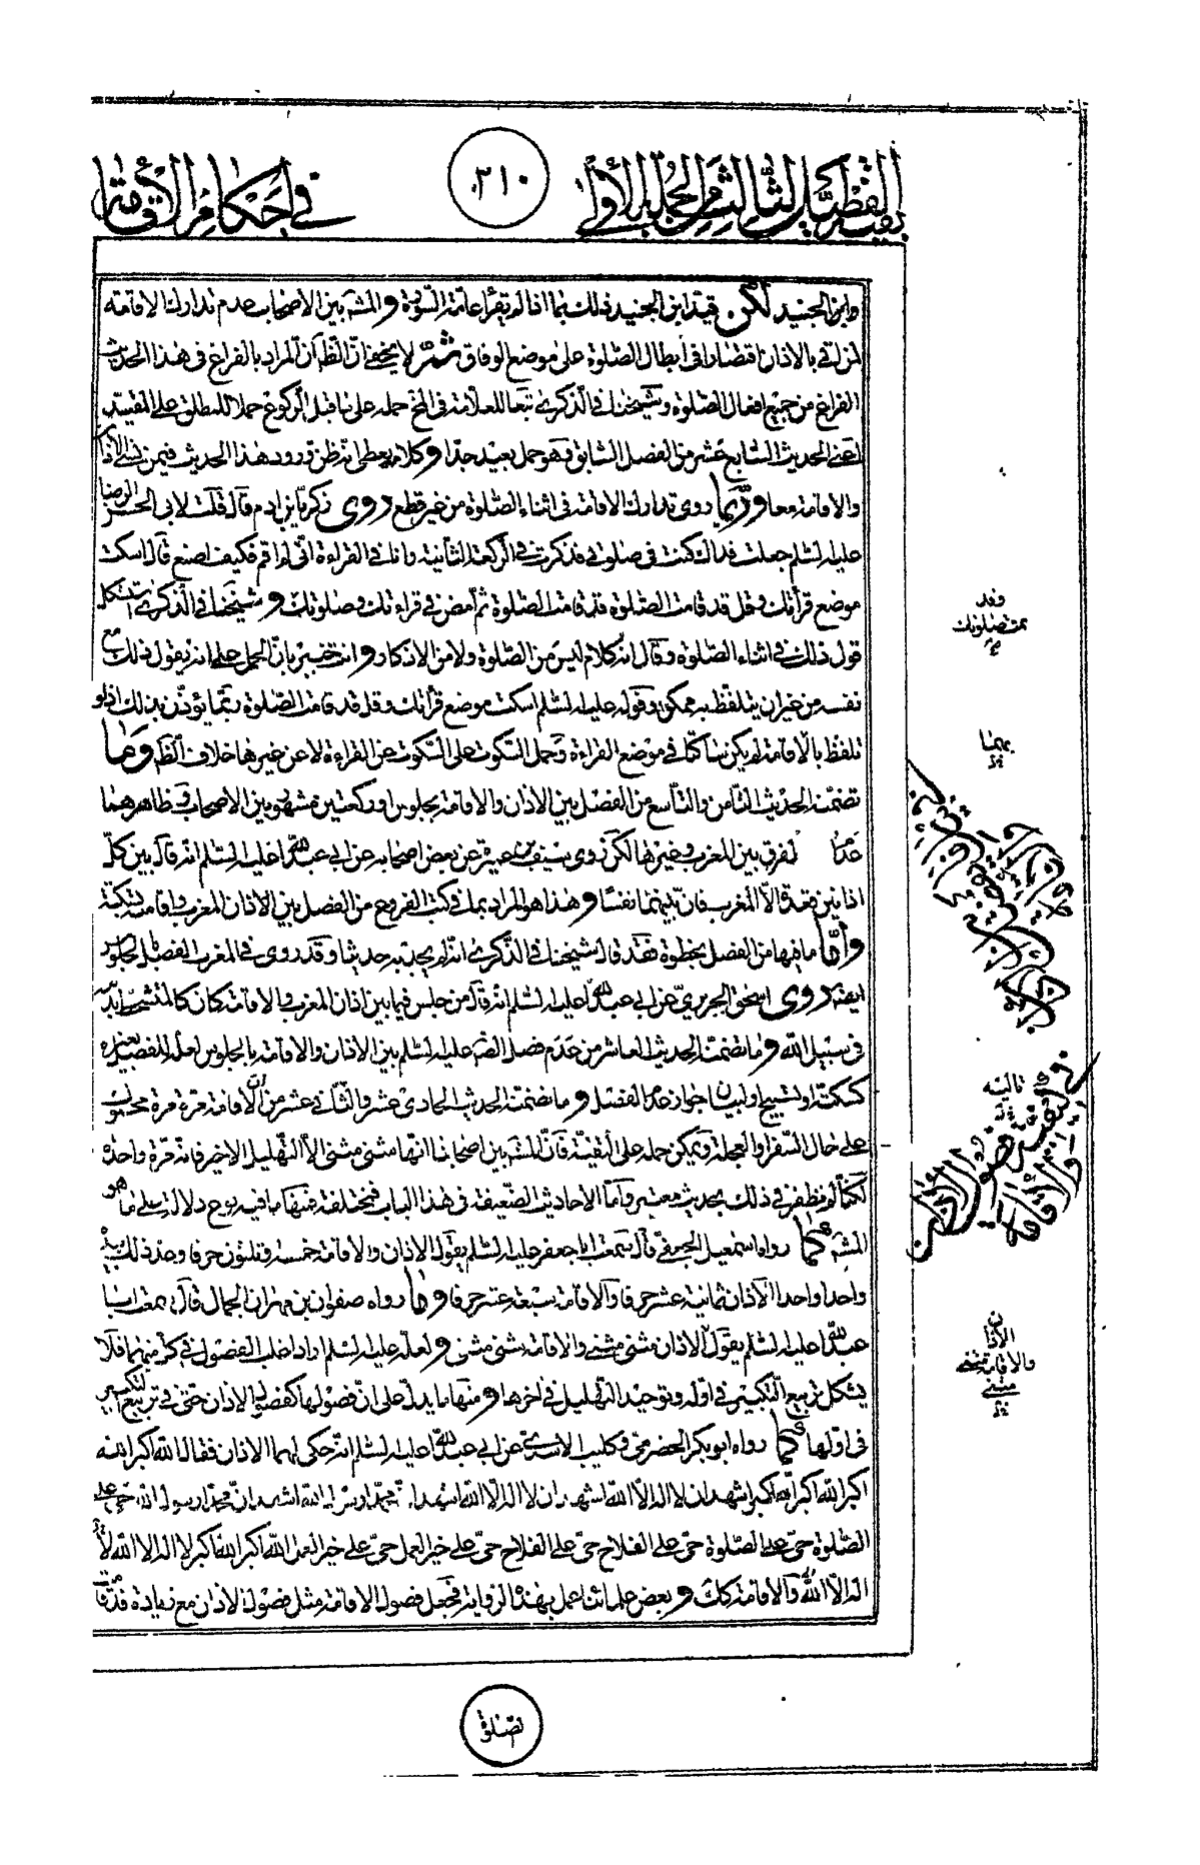 ٢١٠
في احكام الاقامة
وابن الجنيد لكن قيد ابن الجنيد ذلك بما اذا لم يقرأ عامة السورة والمشه بين الاصحاب عدم تدارك الاقامة
المنسي بالاذان اقتصارا في أبطال الصلوة على موضع الوفاق ثم لا يخفى ان الظ ان المراد بالفراغ في هذا الحديث
الفراغ من جميع افعال الصلوة وشيخنا في الذكرى تبعا للعلامة في المخ حمله على ما قبل الركوع حملا للمطلق على المقيد
اعني الحديث السابع عشر من الفصل السابق وهو حمل بعيد جدا وكلامه يعطي انه ظن ورود هذا الحديث فيمن نسي الاذان
والاقامة معا وربما روى تدارك الاقامة في اثناء الصلوة من غير قطع روى زكريا بن ادم قال قلت لابي الحسن الرضا
عليه السلم جعلت فداك كنت في صلوتي فذكرت في الركعة الثانية وانا في القراءة اني لم اقم فكيف اصنع قال اسكت
موضع قرأتك وقل قد قامت الصلوة قد قامت الصلوة ثم أمض في قراءتك وصلوتك وشيخنا في الذكرى استشكل
قول ذلك في اثناء الصلوة وقال انه كلام ليس من الصلوة ولا من الاذكار وانت خبير بان الحمل على انه يقول ذلك مع
نفسه من غير ان يتلفظ به ممكن وقوله عليه السلم اسكت موضع قرأتك وقل قد قامت الصلوة ربما يؤذن بذلك اذ لو
تلفظ بالاقامة لم يكن ساكتا في موضع القراءة وحمل السكوت على السكوت عن القراءة لا عن غيرها خلاف الظ وما
تضمنه الحديث الثامن والتاسع من الفصل بين الاذان والاقامة بجلوس او ركعتين مشهور بين الاصحاب وظاهرهما
عدم الفرق بين المغرب وغيرها لكن روى سيف بن عميرة عن بعض اصحابه عن ابي عبد الله عليه السلم انه قال بين كل
اذانين قعدة الا المغرب فان بينهما نفسا وهذا هو المراد بما في كتب الفروع من الفصل بين الاذان المغرب واقامته بسكتة
وأما ما فيها من الفصل بخطوة فقد قال شيخنا في الذكرى انه لم يجد به حديثا وقد روى في المغرب الفصل بالجلوس
ايضا روى اسحق الجريري عن ابي عبد الله عليه السلم انه قال من جلس فيما بين اذان المغرب والاقامة كان كالمتشحط بدمه
في سبيل الله وما تضمنه الحديث العاشر من عدم فصل الصه عليه السلم بين الاذان والاقامة بالجلوس لعله للفصل بغيره
كسكتة او تسبيح او لبيان جواز عدم الفصل وما تضمنه الحديث الحادي عشر والثاني عشر من أن الاقامة مرة مرة محمول
على حال السفر او العجلة ويمكن حمله على التقية فان المشه بين اصحابنا انها مثنى مثنى الا التهليل الاخير فانه مرة واحدة
لكنا لم نظفر في ذلك بحديث معتبر وأما الاحاديث الضعيفة في هذا الباب فمختلفة فمنها ما فيه نوع دلالة على ما هو
المشه كما رواه اسمعيل الجعفي قال سمعت ابا جعفر عليه السلم يقول الاذان والاقامة خمسة وثلثون حرفا وعد ذلك بيده
واحدا واحدا الاذان ثمانية عشر حرفا والاقامة سبعة عشر حرفا وما رواه صفوان بن مهران الجمال قال سمعت ابا
عبد الله عليه السلم يقول الاذان مثنى مثنى والاقامة مثنى مثنى ولعله عليه السلم اراد اغلب الفصول في كل منهما فلا
يشكل تربيع التكبير في اوله وتوحيد التهليل في اخرها ومنها ما يدل على ان فصولها كفصول الاذان حتى في تربيع التكبير
في اولها كما رواه ابو بكر الحضرمي وكليب الاسدي عن ابي عبد الله عليه السلم انه حكى لهما الاذان فقال الله اكبر الله
اكبر الله اكبر الله اكبر اشهد ان لا اله الا الله اشهد ان لا اله الا الله اشهد ان محمدا رسول الله اشهد ان محمدا رسول الله حي على
الصلوة حي على الصلوة حي على الفلاح حي على الفلاح حي على خير العمل حي على خير العمل الله اكبر الله اكبر لا اله الا الله لا
اله الا الله والاقامة كك وبعض علمائنا عمل بهذه الرواية فجعل فصول الاقامة مثل فصول الاذان مع زيادة قد قامت
وقد
تمت صلوتك
بهما
ثالثة
الاذان
والاقامة مثنى
مثنى